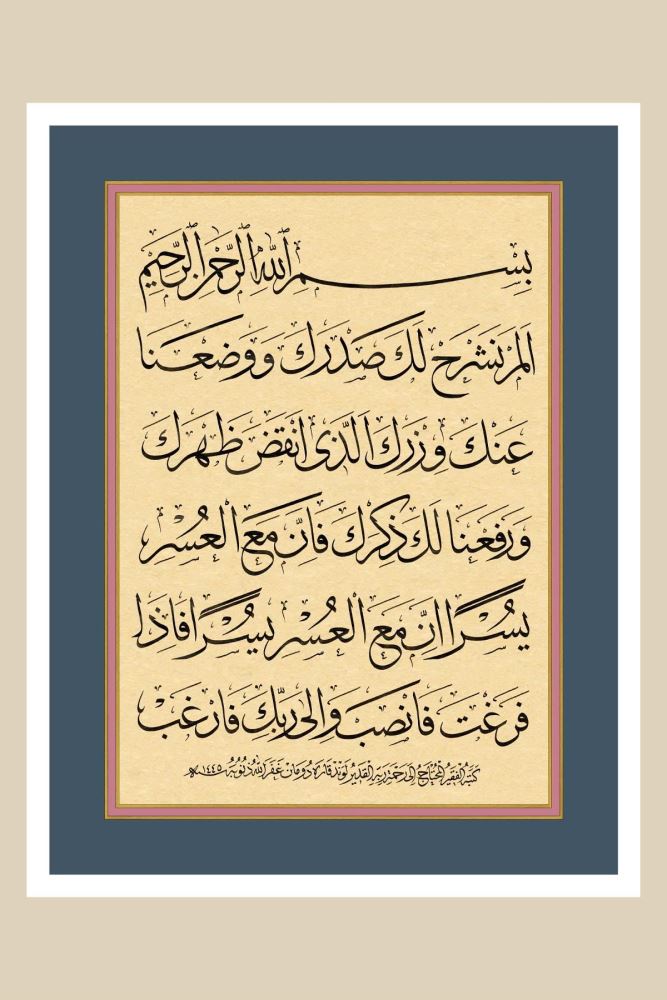 بِسْمِ اللّٰهِ الرَّحْمٰنِ الرَّحِيمِ
اَلَمْ نَشْرَحْ لَكَ صَدْرَكَ وَوَضَعْنَا
عَنْكَ وِزْرَكَ الَّذٖى اَنْقَضَ ظَهْرَكَ
وَرَفَعْنَا لَكَ ذِكْرَكَ فَاِنَّ مَعَ الْعُسْرِ
يُسْرًا اِنَّ مَعَ الْعُسْرِ يُسْرًا فَاِذَا
فَرَغْتَ فَانْصَبْ وَاِلٰى رَبِّكَ فَارْغَبْ
كتبه الفقير المحتاج الى رحمة ربه القدير لوند قاره دومان غفر الله ذنوبه ١٤٤٥هـ